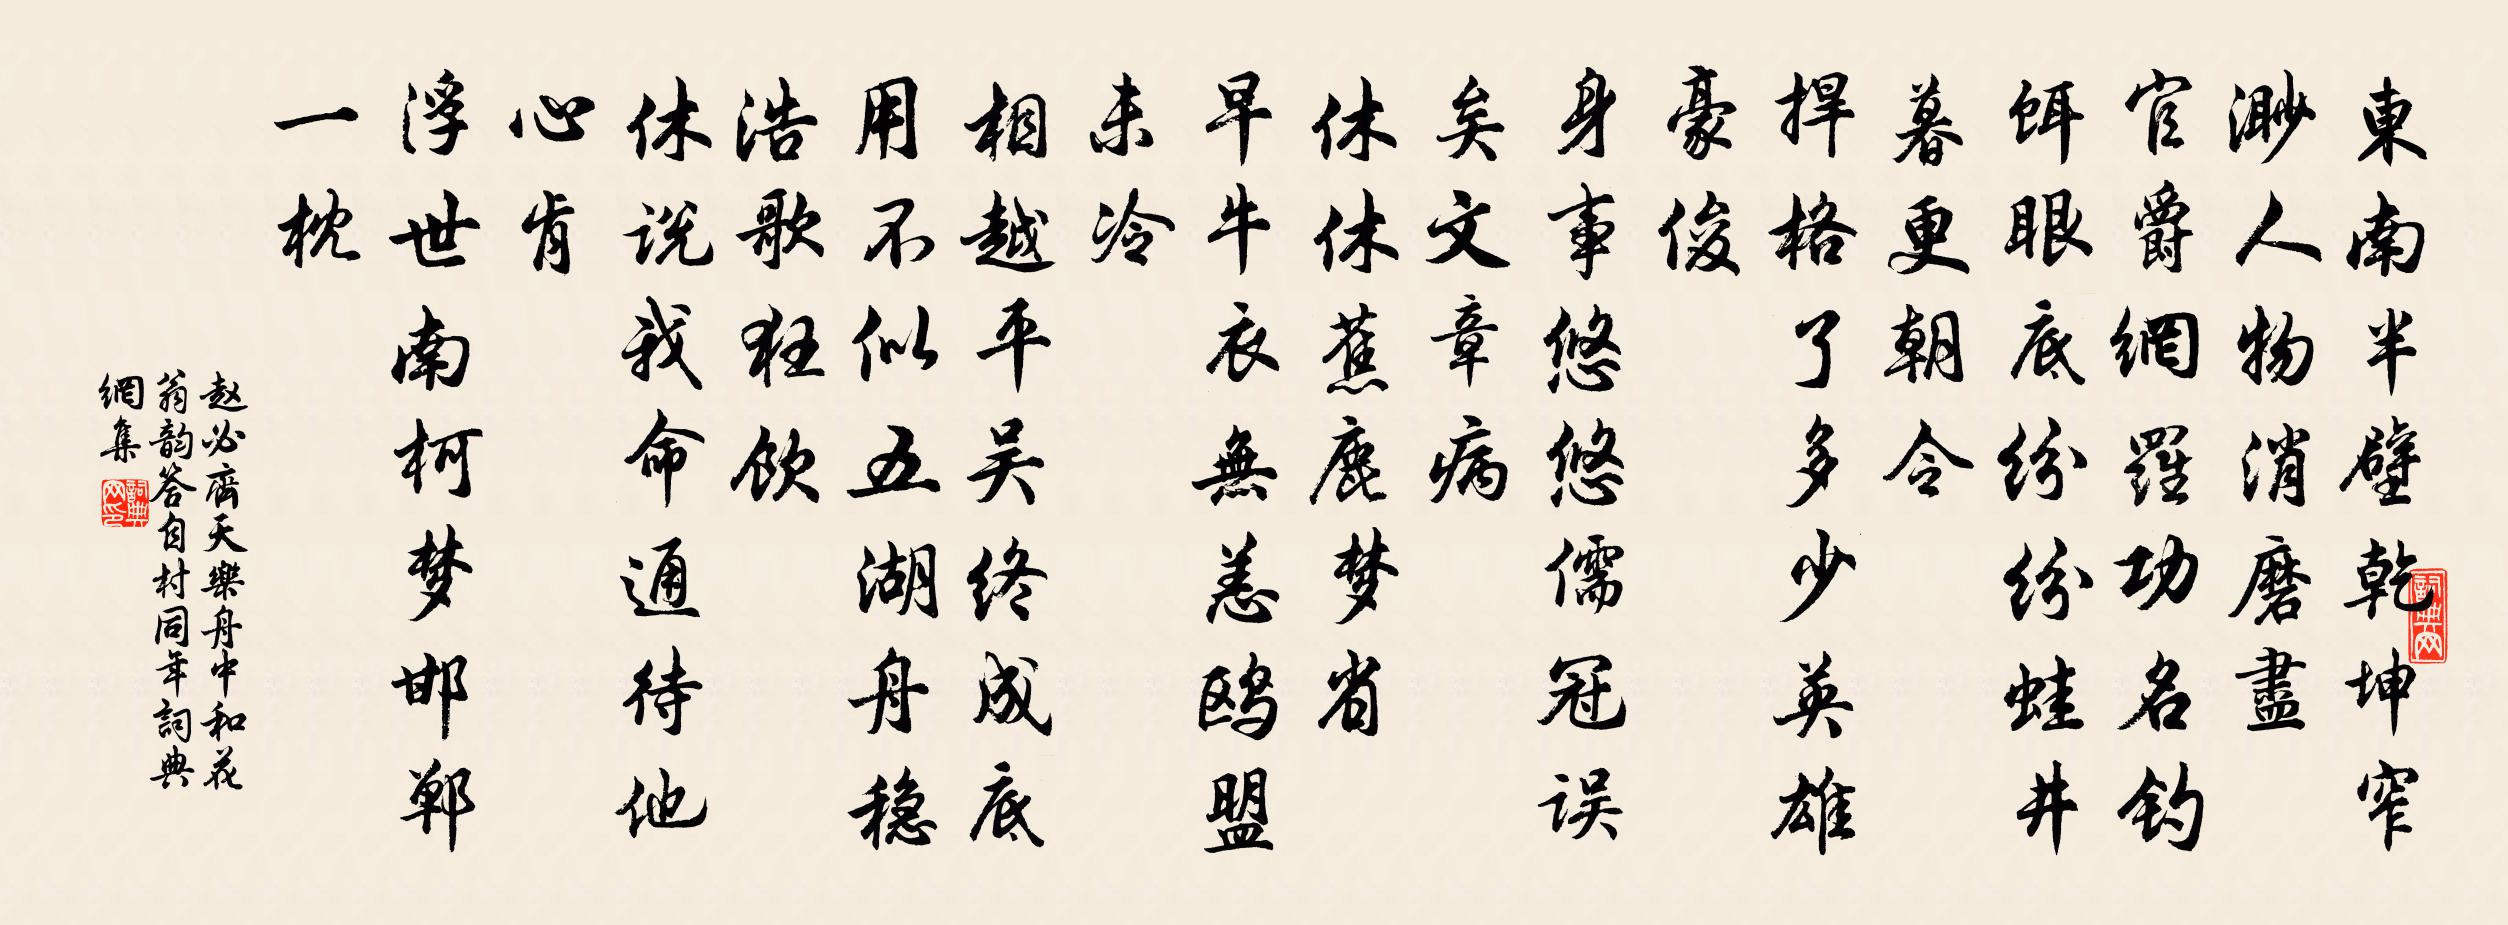 東南半壁乾坤窄
渺人物消磨盡
官爵網羅功名釣
餌眼底紛紛蛙井
暮更朝令
捍格了多少英雄
豪俊
身事悠悠儒冠误
矣文章病
休休蕉鹿梦省
早牛衣無恙鸥盟
未冷
相越平吴终成底
用不似五湖舟穏
浩歌狂飲
休说我命通待他
心肯
浮世南柯梦邯鄲
一枕
赵必𤩪齊天樂舟中和花
翁韵答自村同年詞典
網集
詞典網印
詞典网